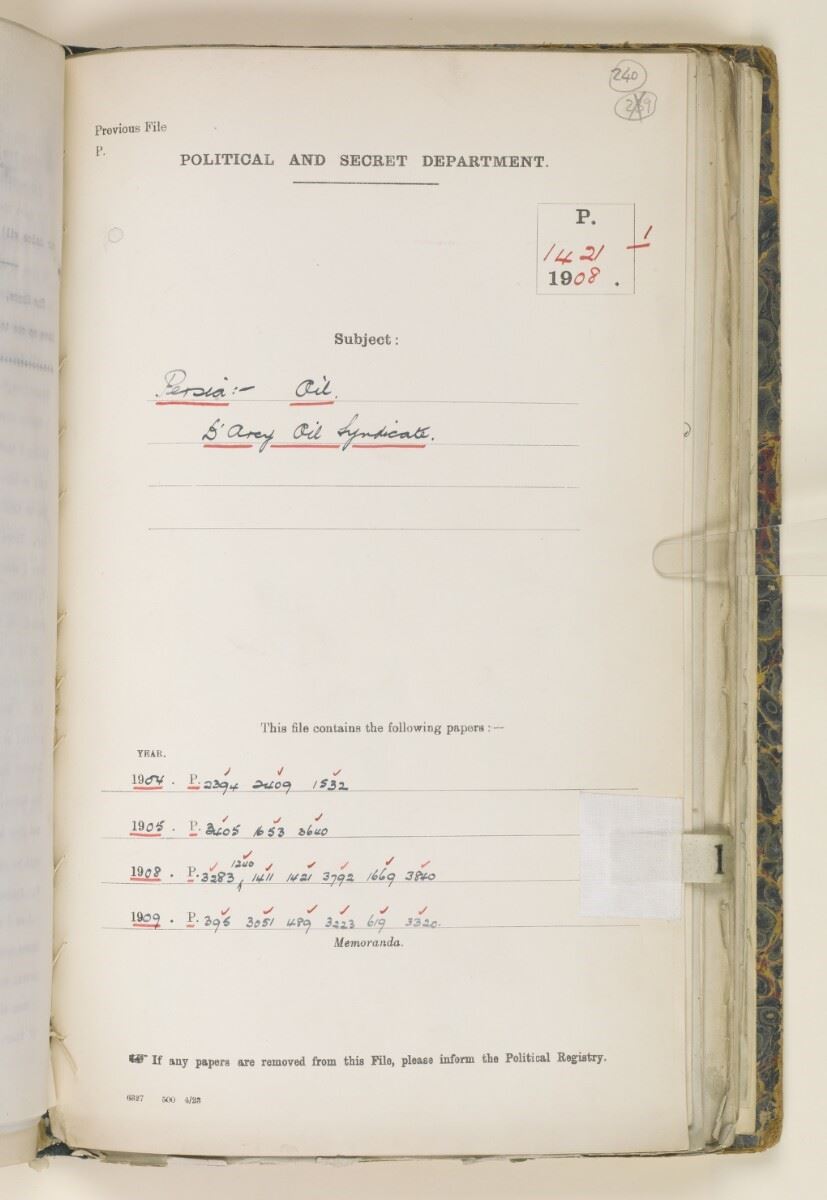 240
239
Previous File
P.
POLITICAL AND SECRET DEPARTMENT.
P.
1421 1
1908.
Subject:
Persia:- Oil.
D'Arcy Oil Syndicate.
This file contains the following papers:—
YEAR.
1904. P. 2394 2409 1532
1905. P. 3405 1653 3640
1240
1908. P. 3283, 1411 1421 3792 1669 3840
1909. P. 395 3051 489 3223 619 3320.
Memoranda.
1
☞ If any papers are removed from this File, please inform the Political Registry.
6327 500 4/23